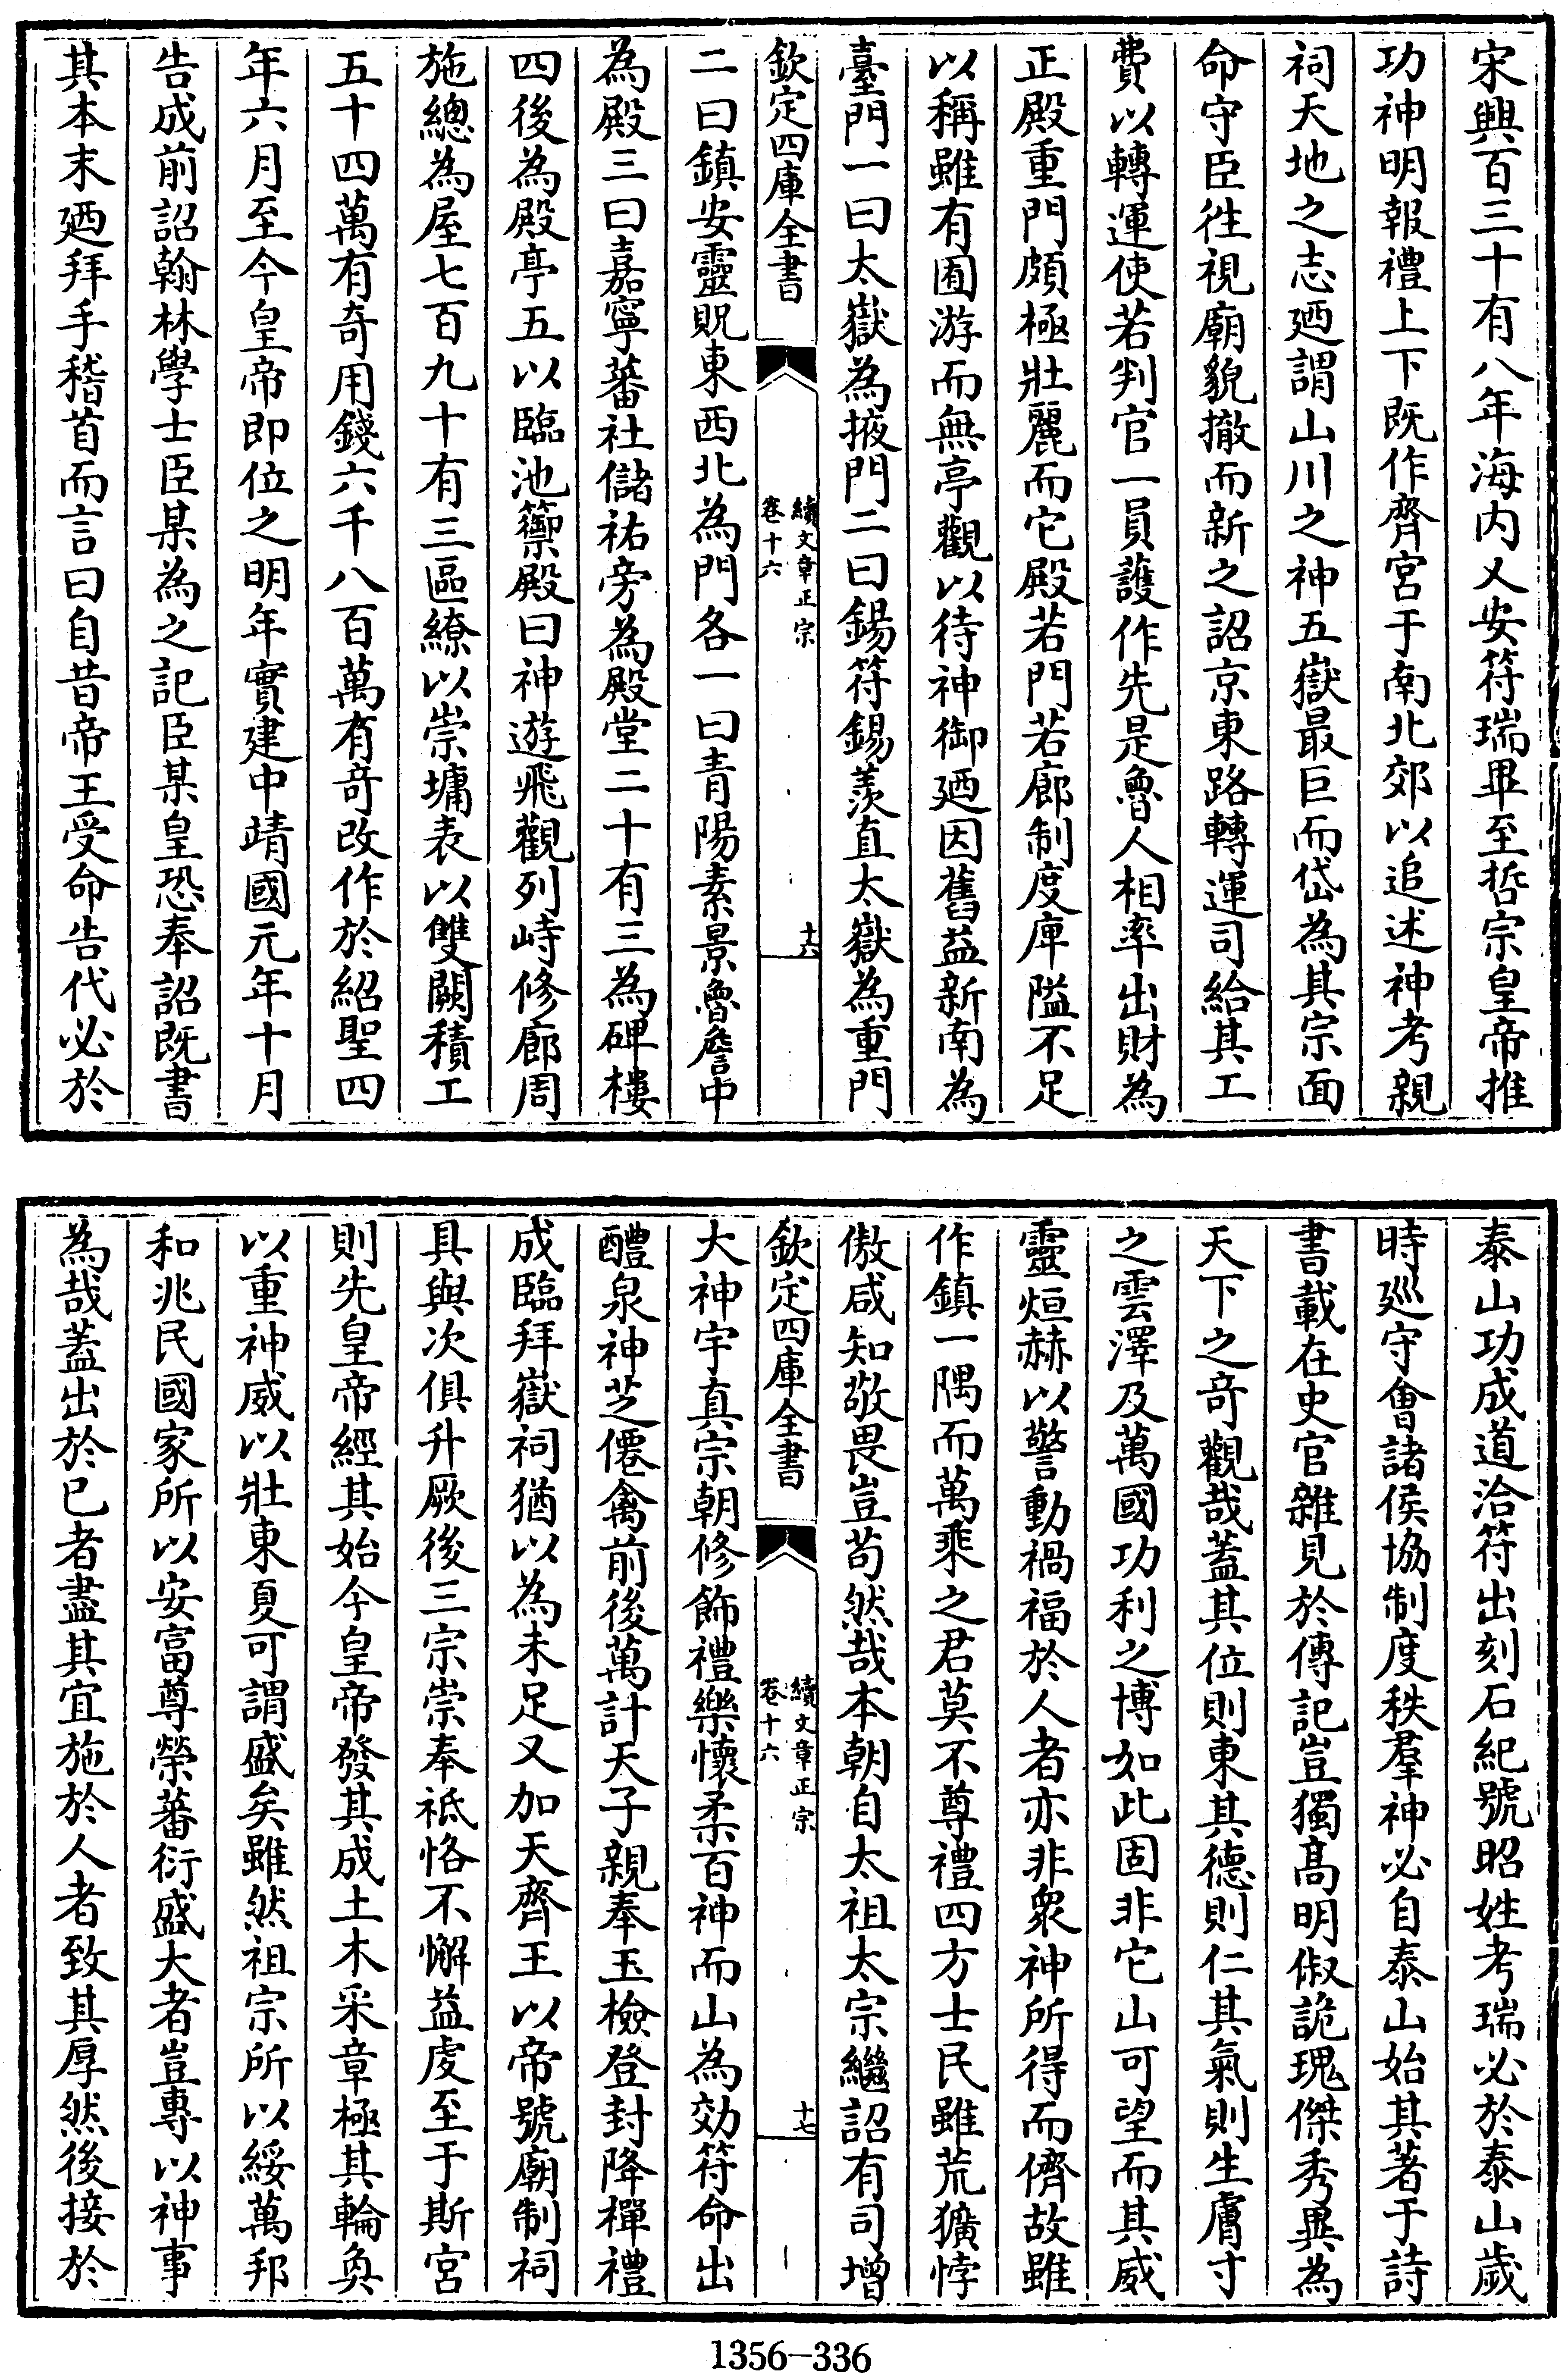 宋興百三十有八年海内乂安符瑞畢至哲宗皇帝推
功神明報禮上下既作齊宮于南北郊以追述神考親
祠天地之志廼謂山川之神五嶽最巨而岱為其宗面
命守臣徃視廟貌撤而新之詔京東路轉運司給其工
費以轉運使若判官一員護作先是魯人相率出財為
正殿重門頗極壯麗而它殿若門若廊制度庳隘不足
以稱雖有囿游而無亭觀以待神御廼因舊益新南為
臺門一曰太嶽為掖門二曰錫符錫羨直太嶽為重門
欽定四庫全書
續文章正宗
卷十六
十六
二曰鎮安靈貺東西北為門各一曰青陽素景魯詹中
為殿三曰嘉寧蕃社儲祐旁為殿堂二十有三為碑樓
四後為殿亭五以臨池籞殿曰神遊飛觀列峙修廊周
施總為屋七百九十有三區繚以崇墉表以雙闕積工
五十四萬有奇用錢六千八百萬有竒改作於紹聖四
年六月至今皇帝即位之明年實建中靖國元年十月
告成前詔翰林學士臣某為之記臣某皇恐奉詔既書
其本末廼拜手稽首而言曰自昔帝王受命告代必於
泰山功成道洽符出刻石紀號昭姓考瑞必於泰山歲
時廵守會諸侯協制度秩羣神必自泰山始其著于詩
書載在史官雜見於傳記豈獨高明俶詭瑰傑秀異為
天下之竒觀哉蓋其位則東其德則仁其氣則生膚寸
之雲澤及萬國功利之博如此固非它山可望而其威
靈烜赫以警動禍福於人者亦非衆神所得而儕故雖
作鎮一隅而萬乘之君莫不尊禮四方士民雖荒獷悖
傲咸知敬畏豈苟然哉本朝自太祖太宗繼詔有司增
欽定四庫全書
續文章正宗
卷十六
十七
大神宇真宗朝修飾禮樂懷柔百神而山為効符命出
醴泉神芝僊禽前後萬計天子親奉玉檢登封降禪禮
成臨拜嶽祠猶以為未足又加天齊王以帝號廟制祠
具與次俱升厥後三宗崇奉祗恪不懈益虔至于斯宮
則先皇帝經其始今皇帝發其成土木采章極其輪奐
以重神威以壯東夏可謂盛矣雖然祖宗所以綏萬邦
和兆民國家所以安富尊榮蕃衍盛大者豈專以神事
為哉蓋出於已者盡其宜施於人者致其厚然後接於
1356-336